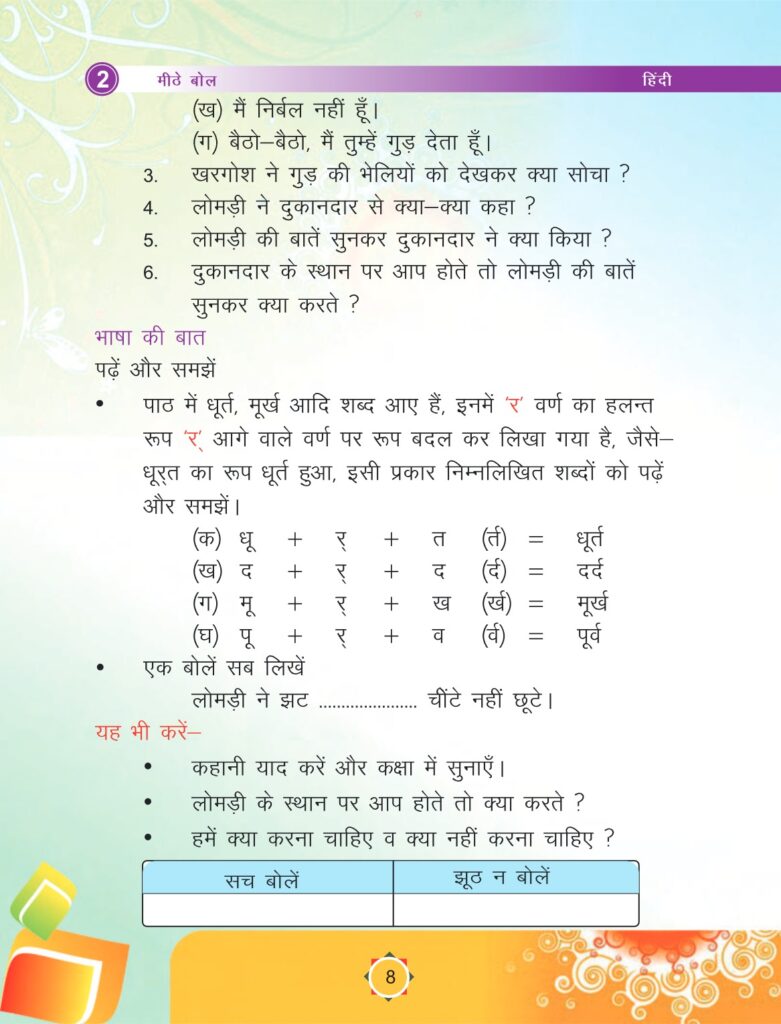 2 मीठे बोल हिंदी
(ख) मैं निर्बल नहीं हूँ।
(ग) बैठो–बैठो, मैं तुम्हें गुड़ देता हूँ।
3. खरगोश ने गुड़ की भेलियों को देखकर क्या सोचा ?
4. लोमड़ी ने दुकानदार से क्या–क्या कहा ?
5. लोमड़ी की बातें सुनकर दुकानदार ने क्या किया ?
6. दुकानदार के स्थान पर आप होते तो लोमड़ी की बातें
सुनकर क्या करते ?
भाषा की बात
पढ़ें और समझें
• पाठ में धूर्त, मूर्ख आदि शब्द आए हैं, इनमें ‘र’ वर्ण का हलन्त
रूप ‘र्’ आगे वाले वर्ण पर रूप बदल कर लिखा गया है, जैसे–
धूर्‌त का रूप धूर्त हुआ, इसी प्रकार निम्नलिखित शब्दों को पढ़ें
और समझें।
(क) धू + र् + त (र्त) = धूर्त
(ख) द + र् + द (र्द) = दर्द
(ग) मू + र् + ख (र्ख) = मूर्ख
(घ) पू + र् + व (र्व) = पूर्व
• एक बोलें सब लिखें
लोमड़ी ने झट ...................... चींटे नहीं छूटे।
यह भी करें–
• कहानी याद करें और कक्षा में सुनाएँ।
• लोमड़ी के स्थान पर आप होते तो क्या करते ?
• हमें क्या करना चाहिए व क्या नहीं करना चाहिए ?
सच बोलें झूठ न बोलें
8